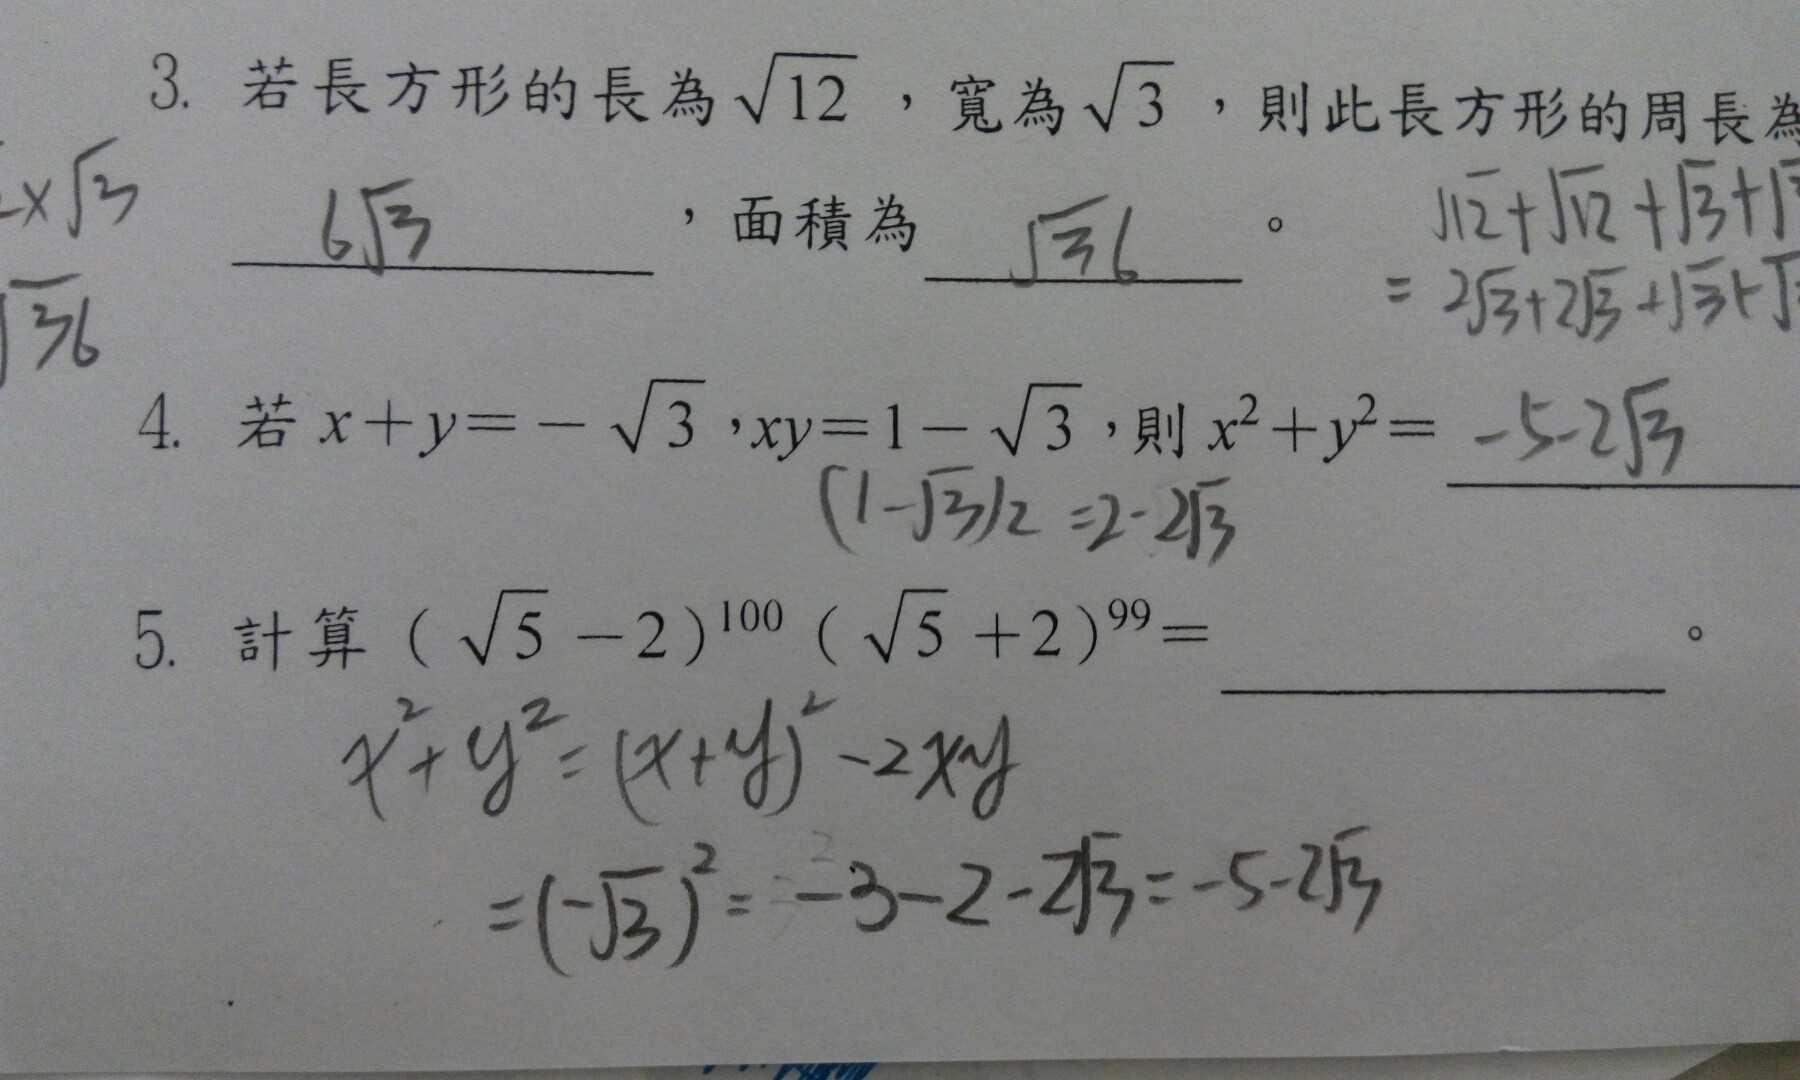 3. 若長方形的長為√12，寬為√3，則此長方形的周長為
6√3，面積為√36。
×√3
√36
√12+√12+√3+√3
=2√3+2√3+√3+√3
4. 若 x+y=-√3，xy=1-√3，則 x²+y²=-5-2√3
(1-√3)2=2-2√3
5. 計算(√5-2)¹⁰⁰(√5+2)⁹⁹=。
x²+y²=(x+y)²-2xy
=(-√3)²=-3-2-2√3=-5-2√3